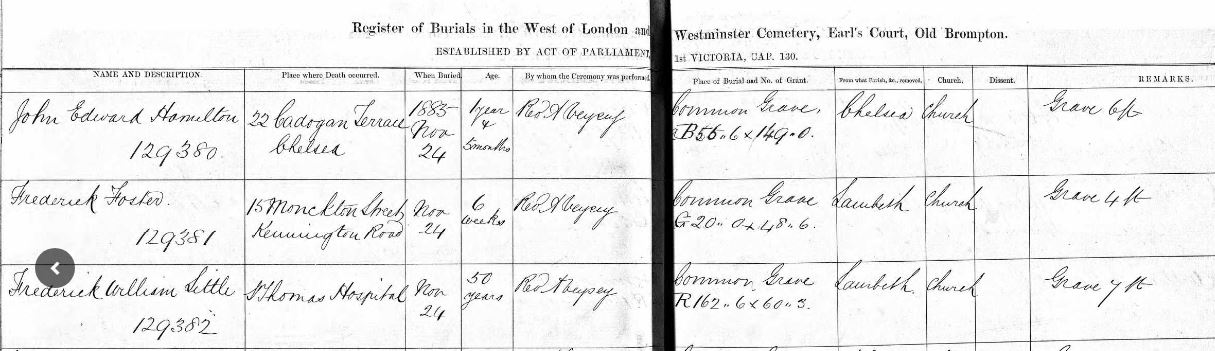 Register of Burials in the West of London and Westminster Cemetery, Earl's Court, Old Brompton.
ESTABLISHED BY ACT OF PARLIAMENT, 1st VICTORIA, CAP. 130.
NAME AND DESCRIPTION. Place where Death occurred. When Buried Age. By whom the Ceremony was performed Place of Burial and No. of Grant. From what Parish, &c., removed. Church. Dissent. REMARKS.
John Edward Hamilton
129380
22 Cadogan Terrace
Chelsea
1885
Nov
24
1 year
4
months
Revd
Common Grave,
B55"6 x 149"0.
Chelsea
Church
Grave 6 ft
Frederick Foster.
129381
15 Monckton Street
Kennington Road
Nov
24
6
weeks
Revd
Common Grave
G 20"0 x 48"6.
Lambeth
Church
Grave 4 ft
Frederick William Little
129382
St Thomas Hospital
Nov
24
50
years
Revd
Common Grave
R162"6 x 60"3.
Lambeth
Church
Grave 7 ft